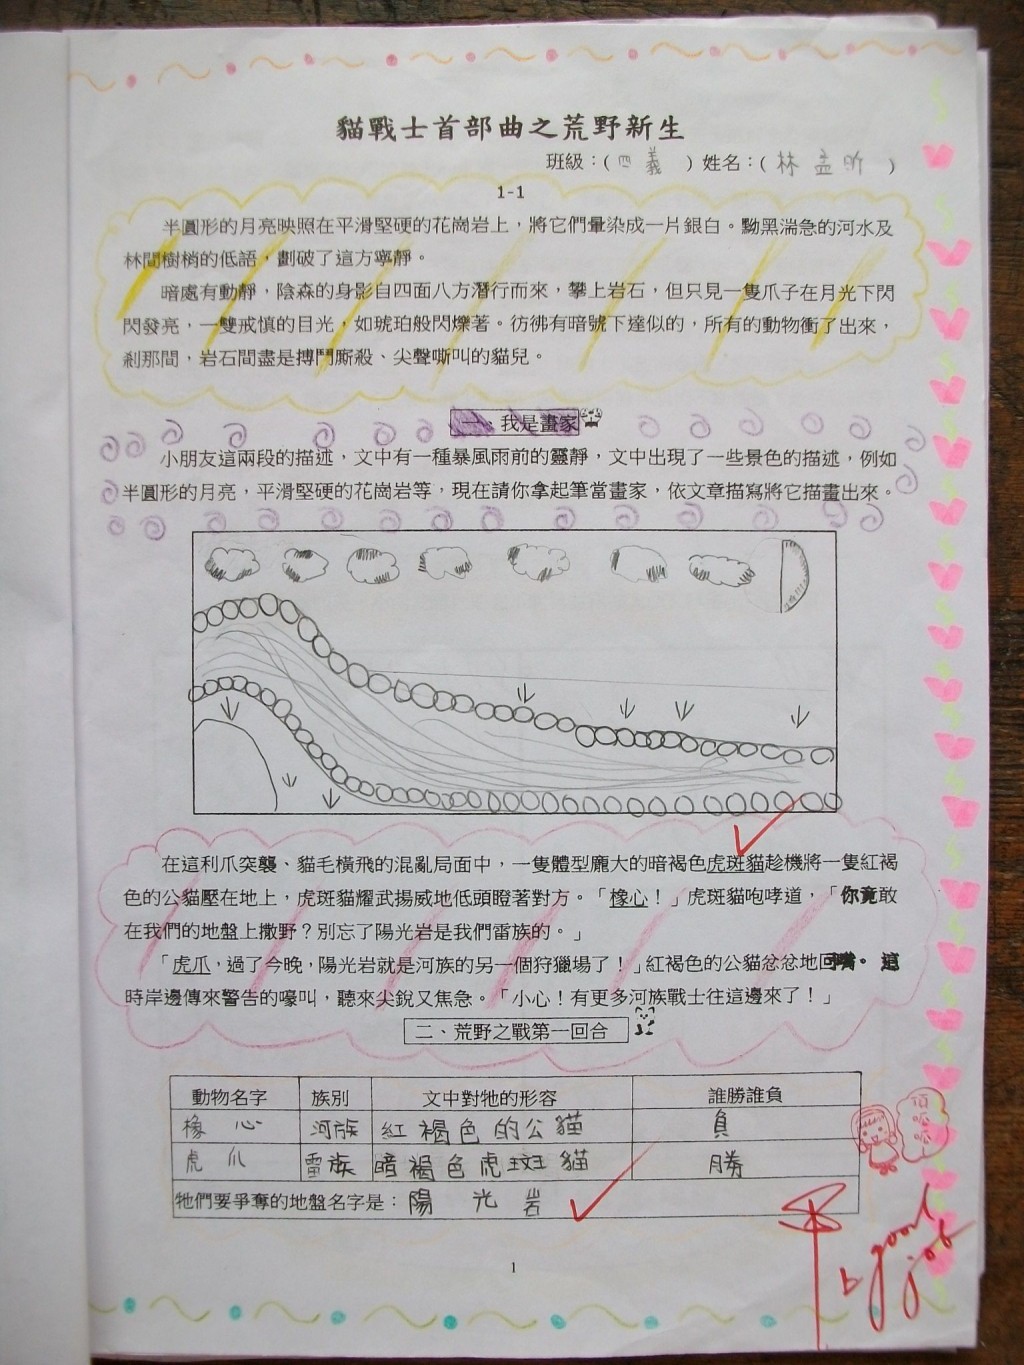 貓戰士首部曲之荒野新生
班級：( 四義 ) 姓名：( 林孟昕 )
1-1
半圓形的月亮映照在平滑堅硬的花崗岩上，將它們暈染成一片銀白。黝黑湍急的河水及
林間樹梢的低語，劃破了這方寧靜。
暗處有動靜，陰森的身影自四面八方潛行而來，攀上岩石，但只見一隻爪子在月光下閃
閃發亮，一雙戒慎的目光，如琥珀般閃爍著。彷彿有暗號下達似的，所有的動物衝了出來，
剎那間，岩石間盡是搏鬥廝殺、尖聲嘶叫的貓兒。
一、我是畫家
小朋友這兩段的描述，文中有一種暴風雨前的靈靜，文中出現了一些景色的描述，例如
半圓形的月亮，平滑堅硬的花崗岩等，現在請你拿起筆當畫家，依文章描寫將它描畫出來。
在這利爪突襲、貓毛橫飛的混亂局面中，一隻體型龐大的暗褐色虎斑貓趁機將一隻紅褐
色的公貓壓在地上，虎斑貓耀武揚威地低頭瞪著對方。「橡心！」虎斑貓咆哮道，「你竟敢
在我們的地盤上撒野？別忘了陽光岩是我們雷族的。」
「虎爪，過了今晚，陽光岩就是河族的另一個狩獵場了！」紅褐色的公貓忿忿地回嘴。這
時岸邊傳來警告的嚎叫，聽來尖銳又焦急。「小心！有更多河族戰士往這邊來了！」
二、荒野之戰第一回合
動物名字 族別 文中對牠的形容 誰勝誰負
橡心 河族 紅褐色的公貓 負
虎爪 雷族 暗褐色虎斑貓 勝
牠們要爭奪的地盤名字是：陽光岩
good
job
1